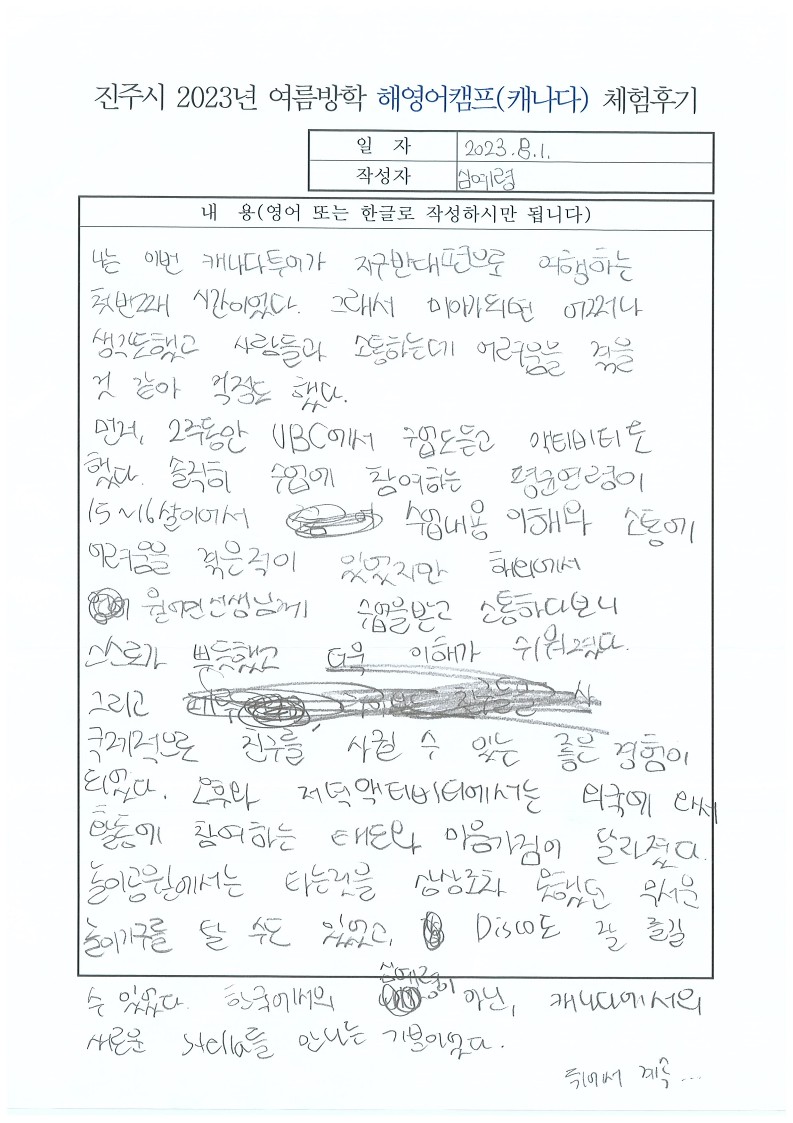 진주시 2023년 여름방학 해영어캠프(캐나다) 체험후기
일 자 2023.8.1.
작성자 심예령
내 용(영어 또는 한글로 작성하시만 됩니다)
나는 이번 캐나다투어가 지구반대편으로 여행하는
첫번째 시간이었다. 그래서 미아가되면 어쩌나
생각도했고 사람들과 소통하는데 어려움을 겪을
것 같아 걱정도 했다.
먼저, 2주동안 UBC에서 수업도듣고 액티비티도
했다. 솔직히 수업에 참여하는 평균연령이
15~16살이어서 수업내용 이해와 소통에
어려움을 겪은적이 있었지만 해외에서
원어민선생님께 수업을받고 소통하다보니
스스로가 뿌듯했고 더욱 이해가 쉬워졌다.
그리고
국제적으로 친구를 사귈 수 있는 좋은 경험이
되었다. 오후와 저녁액티비티에서는 외국에 와서
활동에 참여하는 태도와 마음가짐이 달라졌다.
놀이공원에서는 타는것을 상상조차 못했던 무서운
놀이기구를 탈 수도 있었고, Disco도 잘 즐길
수 있었다. 한국에서의 심예령이 아닌, 캐나다에서의
새로운 Stella를 만나는 기분이었다.
뒤에서 계속...